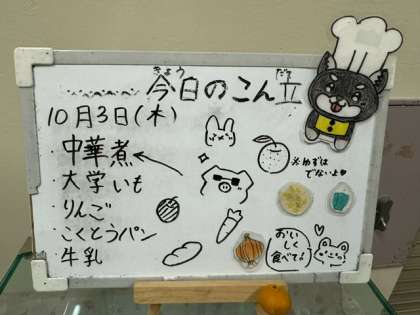 きょう だて
今日のこん立
10月3日(木)
・中華煮
・大学いも
・りんご
・こくとうパン
・牛乳
※ゆずは
でないよ
おいしく
食べてね